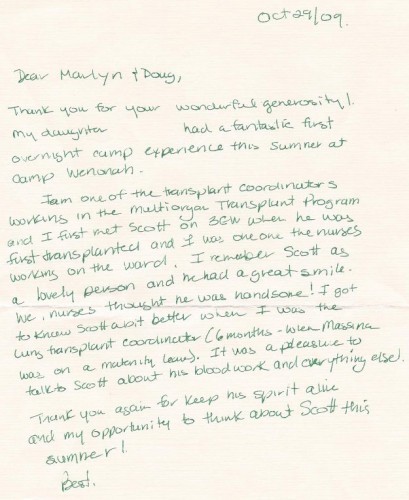 Oct 29/09.
Dear Marlyn & Doug,
Thank you for your wonderful generosity!
My daughter had a fantastic first
overnight camp experience this Summer at
Camp Wenonah.
I am one of the transplant coordinators
working in the Multiorgan Transplant Program
and I first met Scott on 3GW when he was
first transplanted and I was one one the nurses
working on the ward. I remember Scott as
a lovely person and he had a great smile.
We, nurses thought he was handsome! I got
to know Scott a bit better when I was the
lung transplant coordinator (6 months - when Massina
was on a maternity leave). It was a pleasure to
talk to Scott about his bloodwork and everything else!
Thank you again for keep his spirit alive
and my opportunity to think about Scott this
summer!
Best.